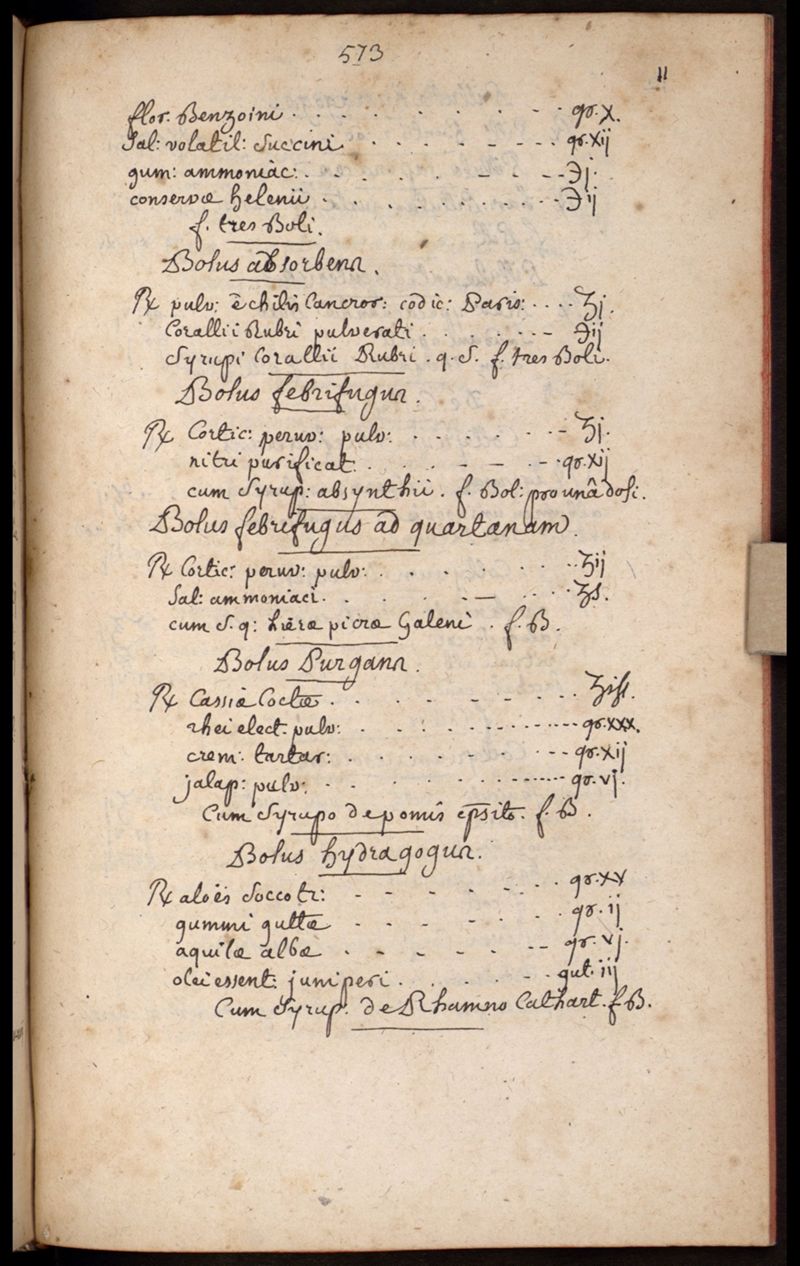 573
11
flor. Benzoini . . . . . . . . . - - gr. x.
Sal: volatil: Succini . . . . - - - - gr. xij
gum: ammoniac: . - . . . . - - - ℈j.
conservæ helenii . . - . . . . . . . ℈ij
f. tres Boli.
Bolus absorbens.
℞ pulv: è chilis Cancror: codic: Paris: . . . . ʒj.
Corallii Rubri pulverati . . . . . - - ℈ij
Syrupi Corallii Rubri . q. S. f. tres Boli.
Bolus febrifugus.
℞ Cortic: peruv: pulv: . . . . . . - ʒj.
nitri purificat. . . . - - . - . gr. xij
cum Syrup: absynthii . f. Bol: pro unâ dosi.
Bolus febrifugus ad quartanam.
℞ Cortic: peruv: pulv: . . . . . . . . ʒij
Sal: ammoniaci . . . . . - . . . ʒß.
cum S. q: hieræ picræ Galeni . f. B.
Bolus Purgans.
℞ Cassiæ Coctæ . . . . - - - . . . ʒiß.
rhei elect. pulv: . . . : . - - - - - - gr. xxx.
crem: tartar: . . . . . - . - - gr. xij
jalap: pulv: . - . . . . - - - - - gr. vj.
Cum Syrupo de pomis . f. B.
Bolus hydragogus.
℞ aloës Soccotr: - - - - - . . gr. xv
gummi guttæ - - - - . - . . gr. ij
aquilæ albæ . - . - - . - - gr. vj.
olei essent: juniperi . . . . . - . gut. iij
Cum Syrup. de Rhamno Cathart. f. B.